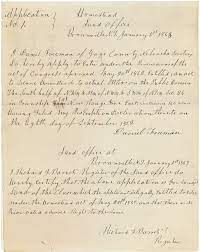 Application
No. 1
Homestead
Land Office
Brownville N.T. January 1st 1863
I, Daniel Freeman of Gage County Nebraska Territory
Do hereby apply to Enter under the Provisions of the
act of Congress approved May 20th 1862, entitled, an act
to secure Homesteads to actual Settlers on the Public Domain
The South half of N.W. 1/4 & N.E. 1/4 of N.W. 1/4 &
in Township Four Range Five East, containing 160 acres
Having filed my Pre emption Declaration thereto on
the Eighth day of September 1862
Daniel Freeman
Land office at
Brownville N.T. January 1st 1863
I Richard F. Barret, Register of the Land office do
hereby certify that the above application is for Surveyed
Land of the Class which the applicant is legally entitled to enter
under the Homestead act of May 20th 1862, and that there is no
Prior valid adverse Right to the Same
Richard F. Barret
Register